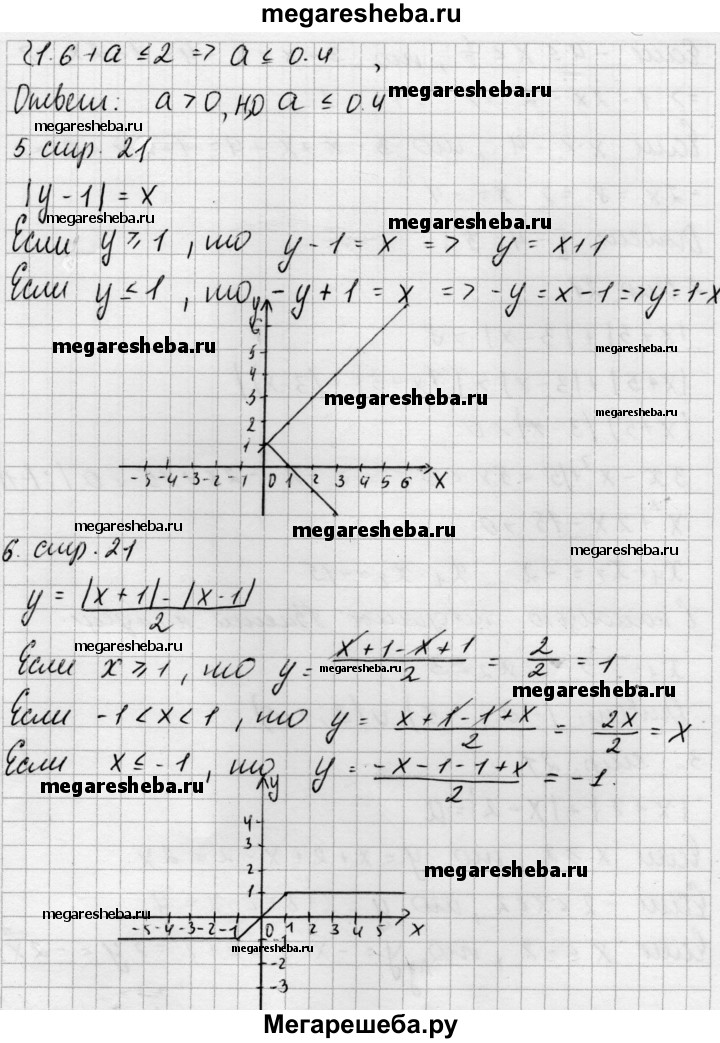 megaresheba.ru
{1.6 + a ≤ 2 => a ≤ 0.4 ,
Ответ: a > 0, но a ≤ 0.4 megaresheba.ru
megaresheba.ru
5. стр. 21
|y - 1| = x
megaresheba.ru megaresheba.ru
Если y ⩾ 1, то y - 1 = x => y = x+1
Если y ≤ 1, то - y + 1 = x => - y = x - 1 => y = 1-x
megaresheba.ru megaresheba.ru
y
6
5
4
megaresheba.ru megaresheba.ru
3
2
1
-5 -4 -3 -2 -1 0 1 2 3 4 5 6 x
megaresheba.ru megaresheba.ru megaresheba.ru
6. стр. 21
y = (|x + 1| - |x - 1|)/2
megaresheba.ru
Если x ⩾ 1, то y = (x + 1 - x + 1)/2 = 2/2 = 1
megaresheba.ru megaresheba.ru
Если -1 < x < 1, то y = (x + 1 - 1 + x)/2 = 2x/2 = x
Если x ≤ -1, то y = (-x - 1 - 1 + x)/2 = -1.
megaresheba.ru
y
4
3
2
megaresheba.ru
1
megaresheba.ru
-5 -4 -3 -2 -1 0 1 2 3 4 5 x
-1
megaresheba.ru
-2
-3
Мегарешеба.ру